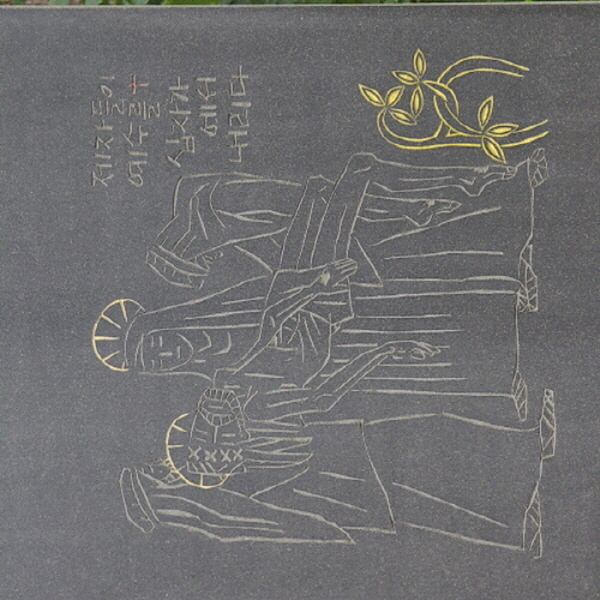 제자들이
예수를
십자가
에서
내리다